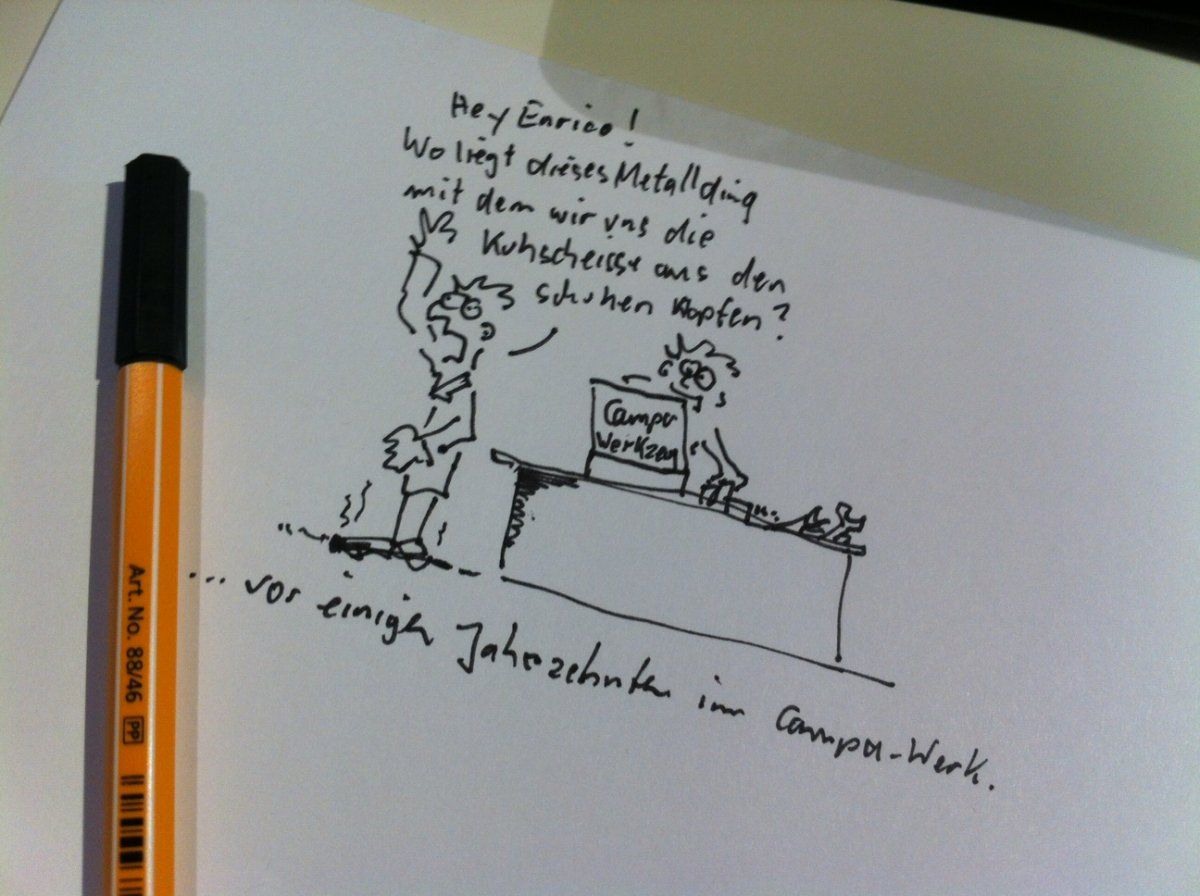 Hey Enrico!
Wo liegt dieses Metallding
mit dem wir uns die
Kuhscheisse aus den
schuhen klopfen?
Campa
Werkzeug
... vor einigen Jahrzehnten im Campa-Werk.
Art. No. 88/46
PP